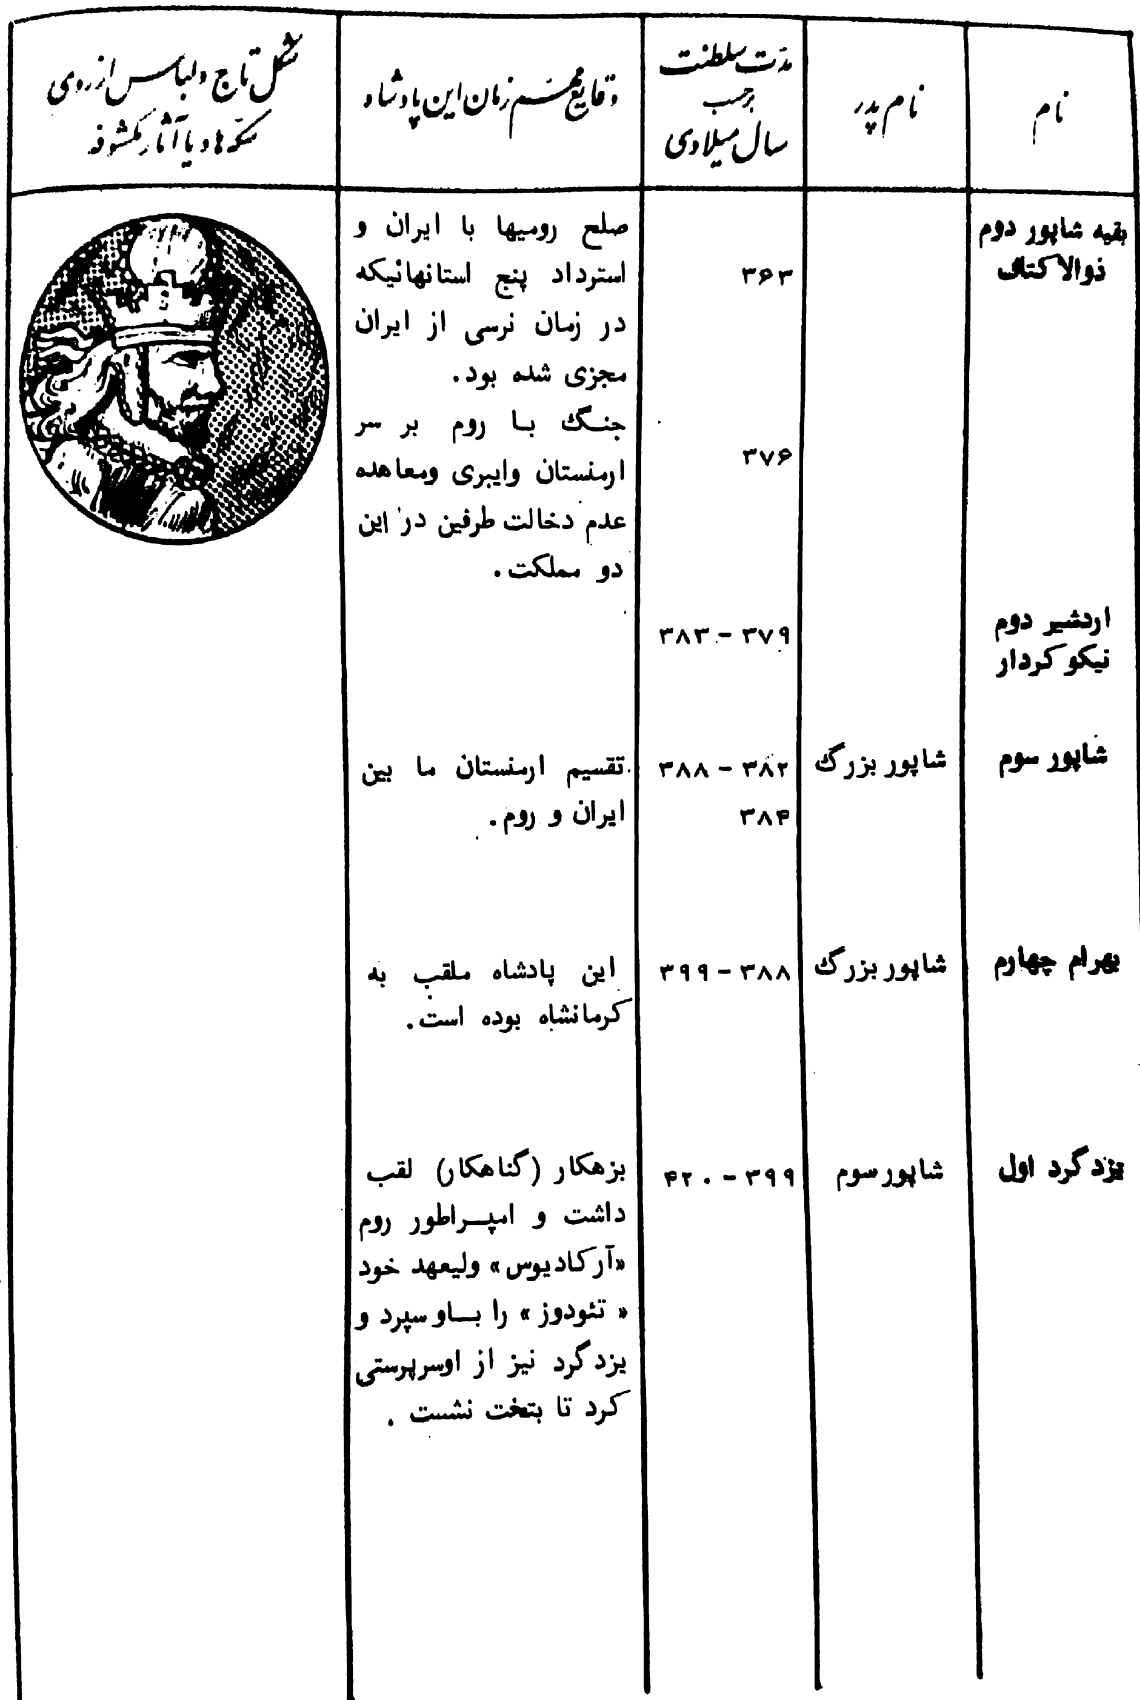 نام
نام پدر
مدت سلطنت
برحسب
سال میلادی
وقایع مهم زمان این پادشاه
شکل تاج ولباس از روی
سکه ها و یا آثار مکشوفه
بقیه شاپور دوم
ذوالاکتاف
۳۶۳
صلح رومیها با ایران و
استرداد پنج استانهائیکه
در زمان نرسی از ایران
مجزی شده بود.
۳۷۶
جنگ با روم بر سر
ارمنستان وایبری ومعاهده
عدم دخالت طرفین در این
دو مملکت.
اردشیر دوم
نیکوکردار
۳۷۹ - ۳۸۳
شاپور سوم
شاپور بزرگ
۳۸۲ - ۳۸۸
۳۸۴
تقسیم ارمنستان ما بین
ایران و روم.
بهرام چهارم
شاپور بزرگ
۳۸۸ - ۳۹۹
این پادشاه ملقب به
کرمانشاه بوده است.
یزدگرد اول
شاپور سوم
۳۹۹ - ۴۲۰
بزهکار (گناهکار) لقب
داشت و امپراطور روم
«آرکادیوس» ولیعهد خود
«تئودوز» را باو سپرد و
یزدگرد نیز از اوسرپرستی
کرد تا بتخت نشست.